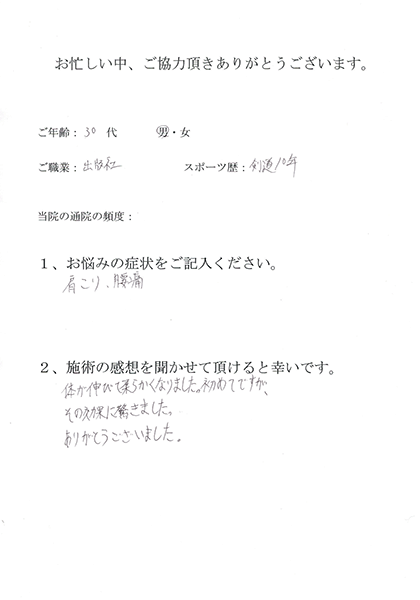 お忙しい中、ご協力頂きありがとうございます。
ご年齢：30 代 男・女
ご職業：出版社 スポーツ歴：剣道10年
当院の通院の頻度：
１、お悩みの症状をご記入ください。
肩こり、腰痛
２、施術の感想を聞かせて頂けると幸いです。
体が伸びて柔らかくなりました。初めてですが、
その効果に驚きました。
ありがとうございました。